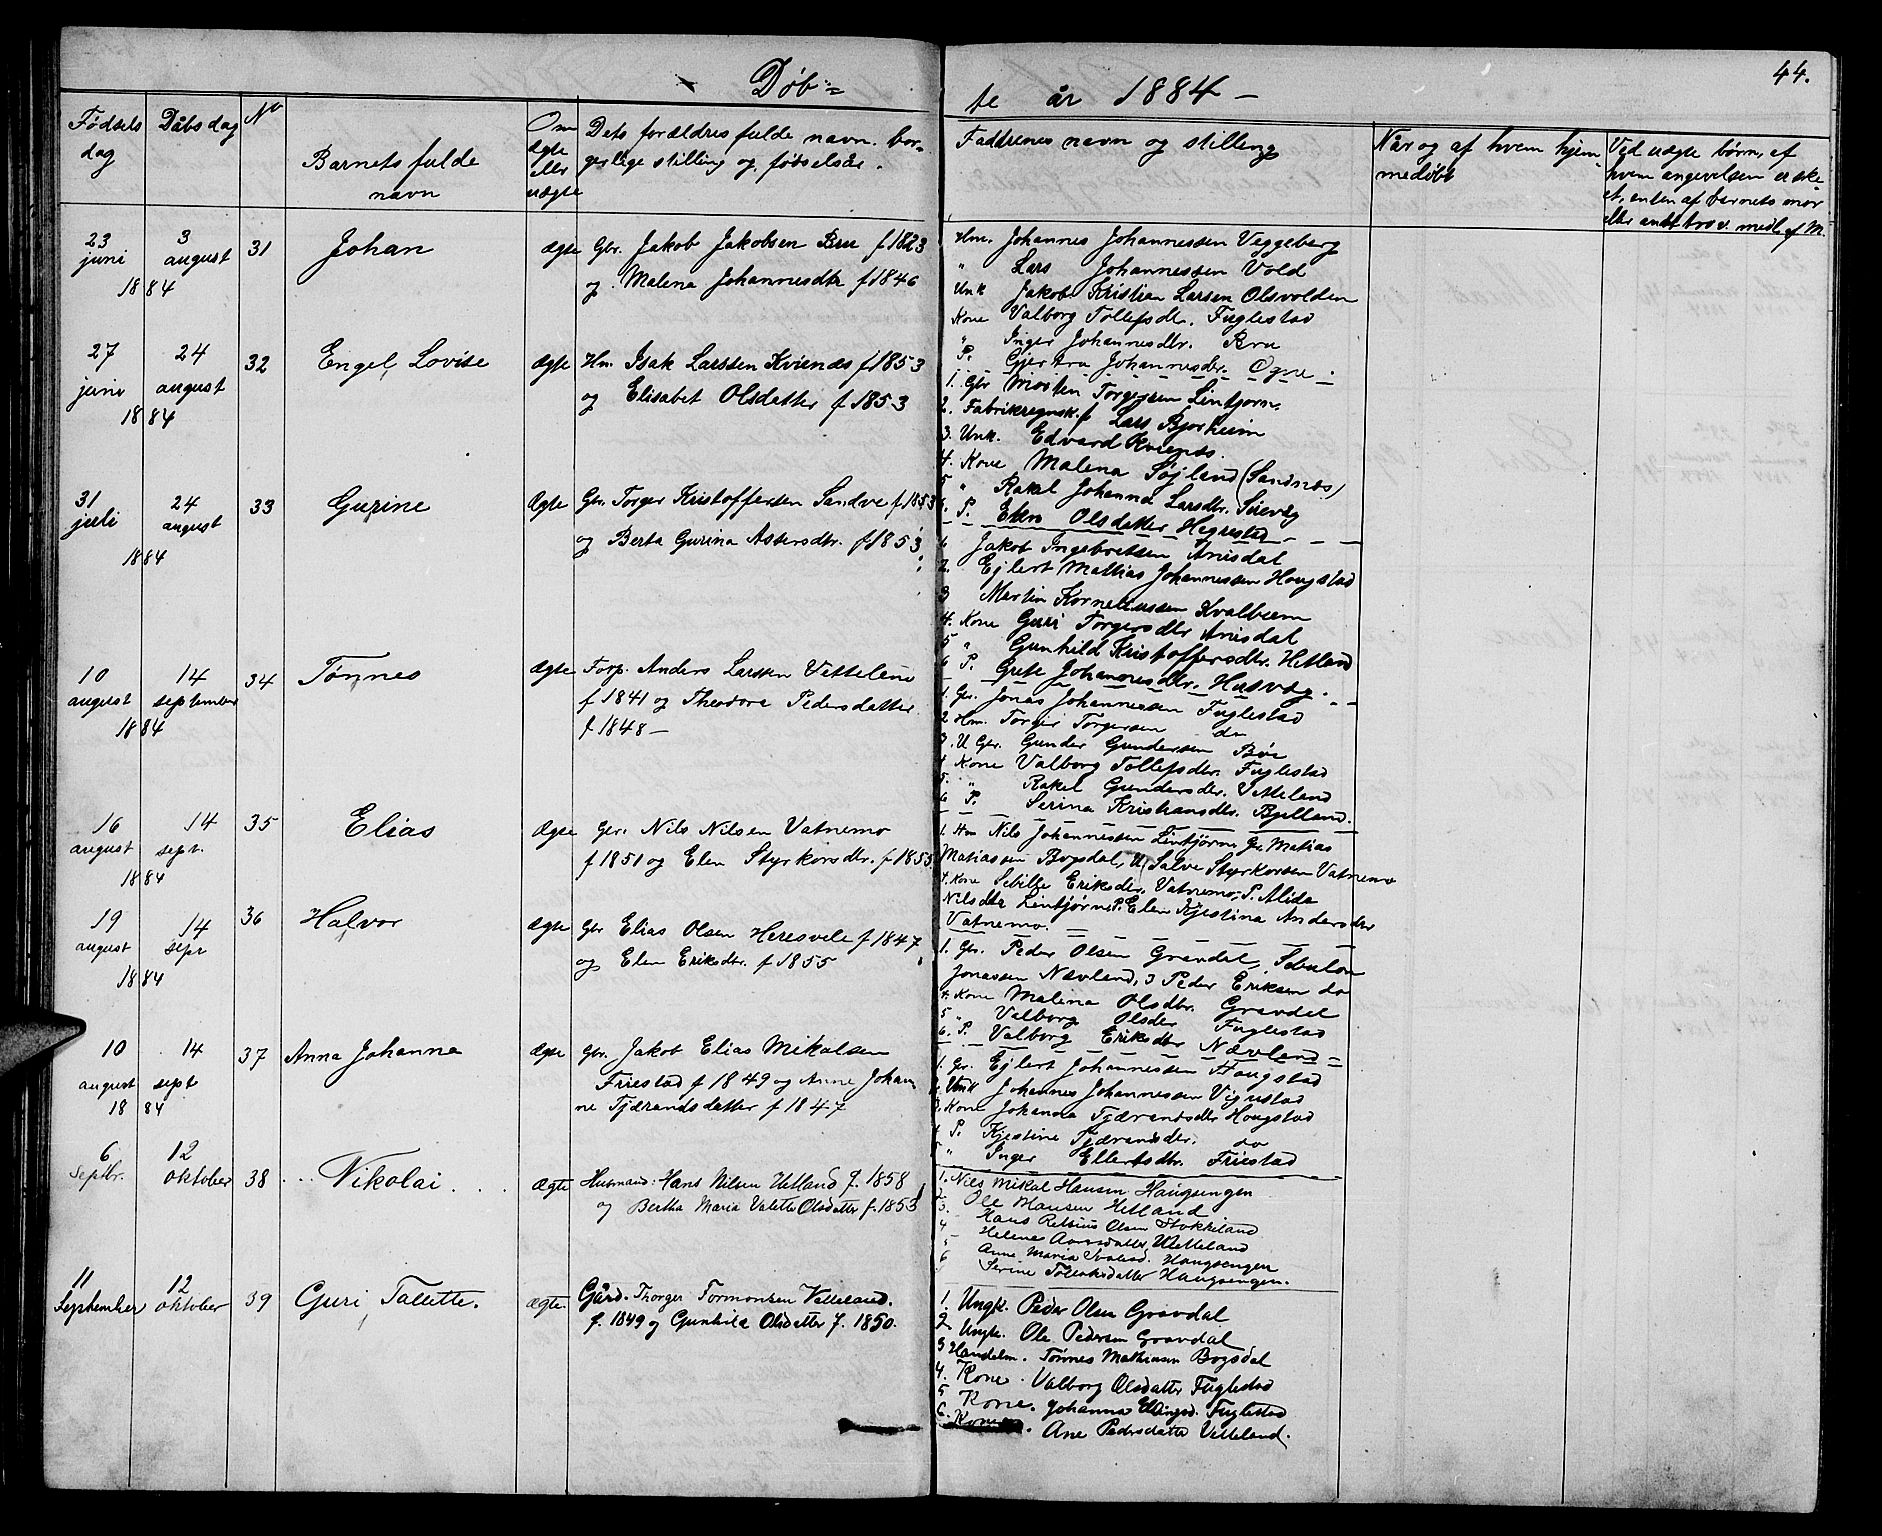 Døb=
te år 1884 –
44.
Fødsels
dag
Dåbsdag
No
Barnets fulde
navn
Om
ægte
eller
uægte
Dets forældres fulde navn. bor-
gerlige stilling og fødselsår.
Faddrenes navn og stilling
Når og af hvem hjem-
medøbt
Ved uægte børn, af
hvem angivelsen er ske-
et, enten af barnets mor
eller andt trov. medl. af M.
23
juni
3
august
1884
31
Johan
ægte
Gbr. Jakob Jakobsen Bru f 1823
og Malena Johannesdtr f 1846
Hm. Johannes Johannessen Veggeberg
" Lars Johannessen Vold
Unk Jakob Kristian Larsen Olsvolden
Kone Valborg Tollefsdtr. Fuglestad
" Inger Johannesdtr. Bru
P. Gjertru Johannesdtr. Ogne
27
juni
24
august
1884
32
Engel Lovise
ægte
Hm. Isak Larssen Kvienæs f 1853
og Elisabet Olsdatter f 1853
1. Gbr Morten Torgersen Lintjørn.
2. Fabrikregnsk.f Lars Bjorheim
3. Unk. Edvard Kvienes.
4. Kone Malena Søjland (Sandnæs)
5 " Rakel Johanna Larsdtr. Sirevåg
6. P. Elen Olsdatter Hegrestad
31
juli
24
august
1884
33
Gurine
ægte
Gbr. Torger Kristoffersen Sandve f 1853
og Berta Gurina Asbersdtr. f 1853
Jakob Ingebretsen Årrisdal
2. Ejlert Mathias Johannessen Hougstad
3 Martin Korneliussen Kvalbein
4. Kone Guri Torgersdtr Årrisdal
5 " Gunhild Kristoffersdtr. Hetland
6 P. Grete Johannesdtr. Husvåg.
10
august
14
september
1884
34
Tønnes
ægte
Forp. Anders Larssen Vetteland
f 1841 og Theodora Pedersdatter
f 1848 –
1. Gr. Jonas Johannessen Fuglestad
2 Hm. Torger Torgersen do
3. U Gbr. Gunder Gundersen Bøe
4 Kone Valborg Tollefsdtr. Fuglestad
5. " Rakel Gundersdtr. Vetteland
6 P. Serina Kristiansdtr. Bjelland.
16
august
14
sept.
1884
35
Elias
ægte
Gbr. Nils Nilsen Vatnemo
f 1851 og Elen Styrkorsdtr. f 1855
1. Hm Nils Johannessen Lintjørn Gr. Matias
Matiassen Bogsdal, U. Salve Styrkorsen Vatnemo
4. Kone Sebille Eriksdtr. Vatnemo, P. Alida
Nilsdtr Lintjørn P. Elen Kjestina Andersdtr
Vatnemo.
19
august
14
sept
1884
36
Halvor
ægte
Gbr Elias Olsen Heresvele f 1847
og Elen Eriksdtr. f 1855
1. Gr. Peder Olsen Gravdal, Sebulon
Jonassen Nævland, 3 Peder Eriksen do
4. Kone Malena Olsdtr. Gravdal
5 " Valborg Olsdtr Fuglestad
6. P. Valborg Eriksdtr Nævland
10
august
14
sept
1884
37
Anna Johanna
ægte
Gbr. Jakob Elias Mikalsen
Friestad f 1849 og Anne Johan
ne Tjærandsdatter f 1847
1. Gr. Ejlert Johannessen Hougstad
2. Unk Johannes Johannessen Vigrestad
3. Kone Johanna Tjærandsdtr Hougstad
4 P. Kjestine Tjærandsdtr. do
5 " Inger Ellertsdtr. Friestad
6
Septbr.
12
oktober
38
Nikolai
ægte
Husmand: Hans Nilsen Hetland f. 1858
og Bertha Maria Valette Olsdatter f. 1853
1. Nils Mikal Hansen Haugsengen
2. Ole Hansen Hetland
3. Hans Rettius Olsen Stokkeland
4 Helenes Aanesdatter Vetteland
5 Anne Maria Ivarsd. Haugsengen
6 Serine Tollaksdatter Haugsengen.
11
September
12
oktober
39
Guri Tallette.
ægte.
Gård. Thorger Tormodsen Vetteland.
f. 1849 og Gunhild Olsdatter f. 1850.
1. Ungk. Peder Olsen Gravdal
2. Ungk. Ole Pedersen Gravdal
3 Handelm. Tønnes Mathiasen Bogsdal
4. Kone. Valborg Olsdatter Fuglestad
5 Kone. Johanna Ellingsd. Fuglestad
6. Kone. Ane Pedersdatter Vetteland.